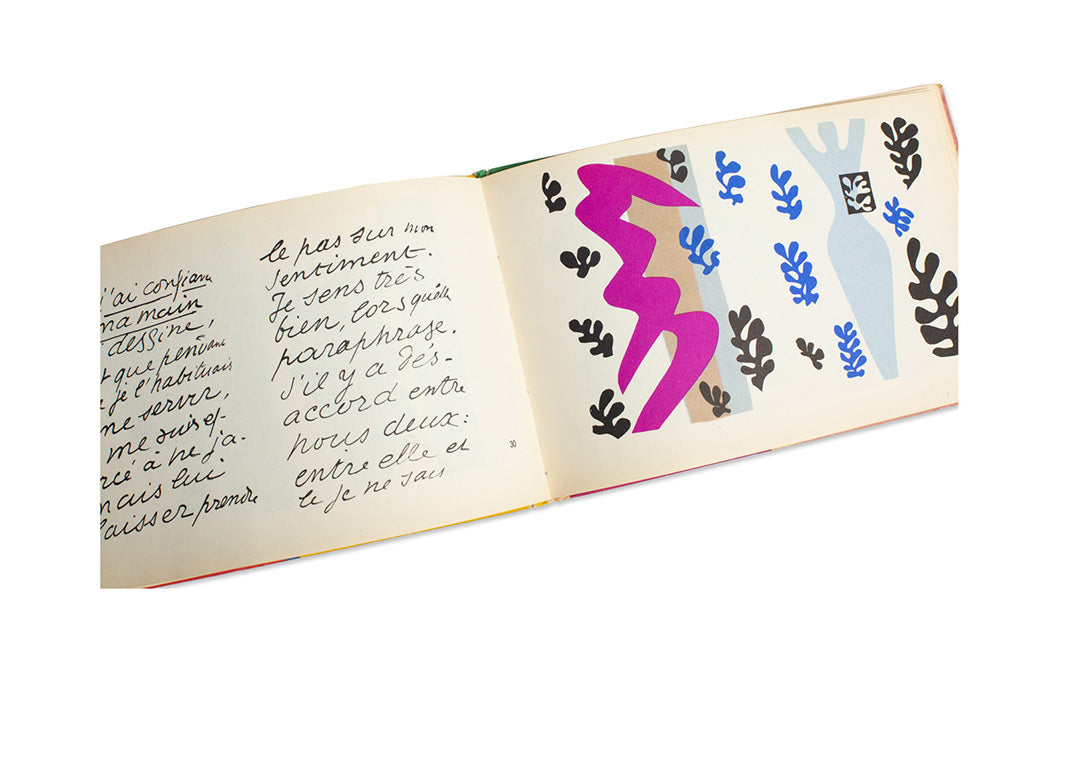 j'ai confiance
ma main
dessine,
que pendant
je l'habituais
me servir,
me suis ef-
rcé à ne ja-
mais lui
laisser prendre
le pas sur mon
sentiment.
Je sens très
bien, lorsqu'elle
paraphrase,
s'il y a dés-
accord entre
nous deux:
entre elle et
le je ne sais
30